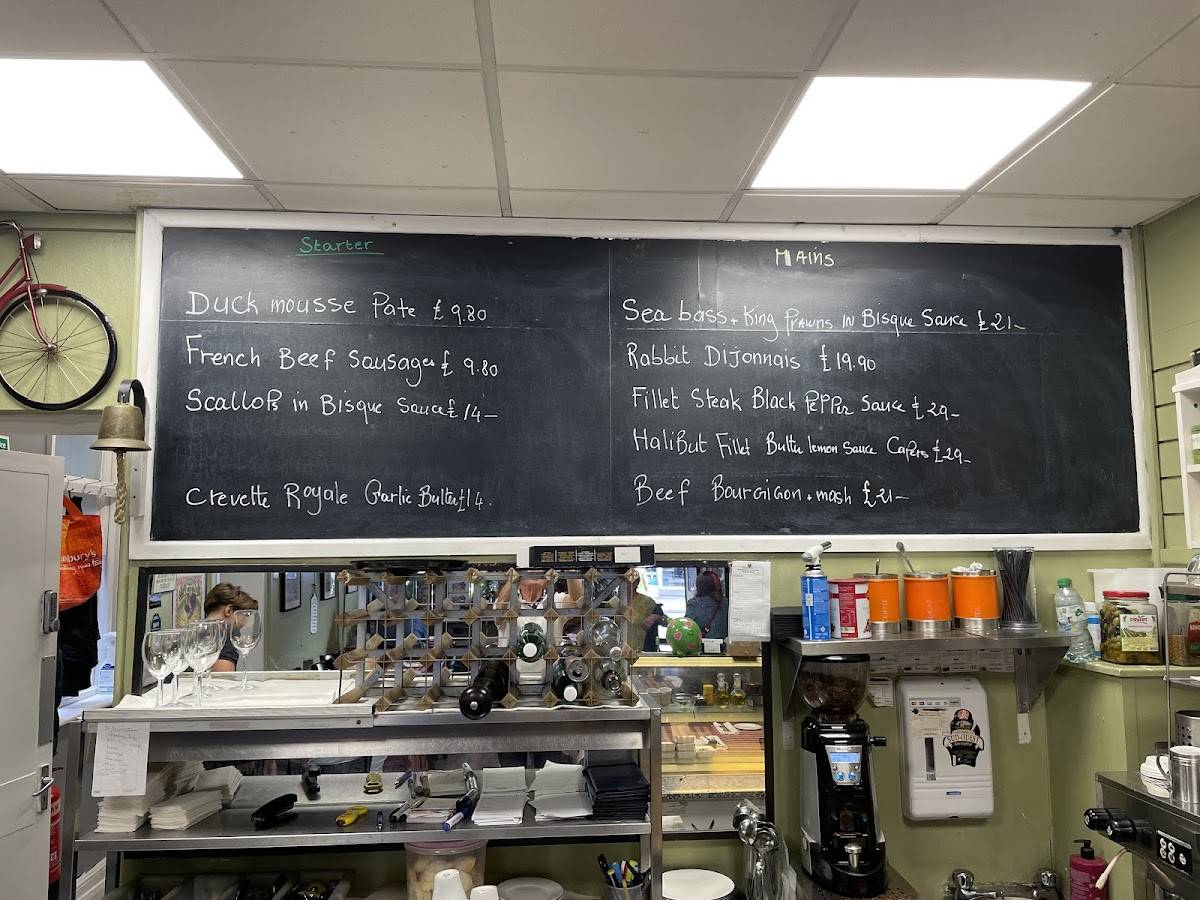 Starter
Duck mousse Pate £ 9.80
French Beef Sausages £ 9.80
Scallops in Bisque Sauce £ 14-
Crevette Royale Garlic Butter £14.
MAiNS
Sea bass + King Prawns in Bisque Sauce £21-
Rabbit Dijonnais £19.90
Fillet Steak Black Pepper Sauce £29-
Halibut Fillet Butter lemon Sauce Capers £29-
Beef Bourgigon + mash £21-